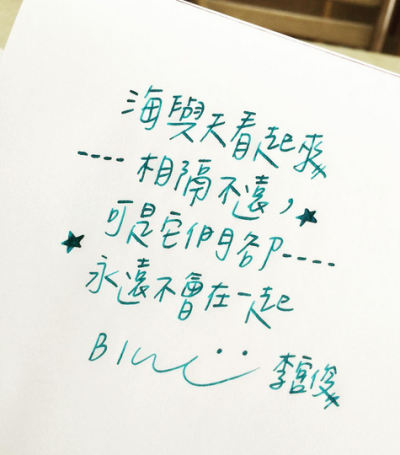 海與天看起來
----相隔不遠，
可是它們卻----
永遠不會在一起
Blue 李宮俊